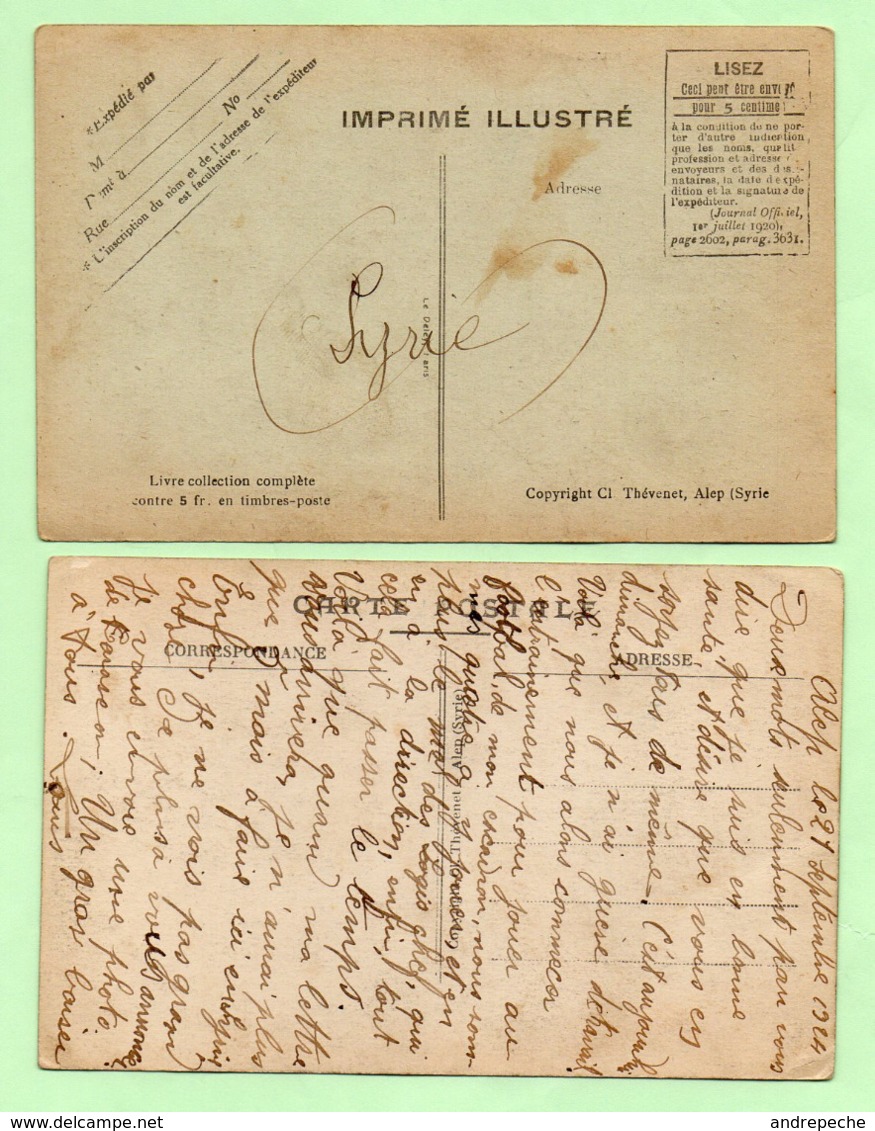 *Expédié par
M
No
Dt mt à
Rue
* L'inscription du nom et de l'adresse de l'expéditeur
est facultative.
IMPRIMÉ ILLUSTRÉ
Adresse
LISEZ
Ceci peut être envoyé
pour 5 centimes
à la condition de ne por-
ter d'autre indication
que les noms, qualité
profession et adresse
envoyeurs et des desti-
nataires, la date d'expé-
dition et la signature de
l'expéditeur.
(Journal Officiel,
1er juillet 1920),
page 2602, parag. 3631.
Syrie
Livre collection complète
contre 5 fr. en timbres-poste
Copyright Cl Thévenet, Alep (Syrie
CARTE POSTALE
CORRESPONDANCE
ADRESSE
Thévenet, Alep (Syrie)
Alep le 27 Septembre 1924
Deux mots seulement pour vous
dire que je suis en bonne
santé, et désire que vous en
soyez tous de même. C'est aujourd'hui
dimanche et je n'ai guère de travail
Voilà que nous alons commecer
l'entrainement pour jouer au
football de mon escadron, nous som-
mes quatre a y jouer, et en
plus le mal des logis chef, qui
en a la direction, enfin, tout
cela fait passer le temps.
Voilà que quand ma lettre
vous arrivera, je n'aurai plus
que 3 mois à faire ici en Syrie
Enfin, je ne vois pas grand
chose de plus à vous annoncer
Je vous envoie une photo
de Tarascon, Un gros baiser
à tous. Louis
andrepeche